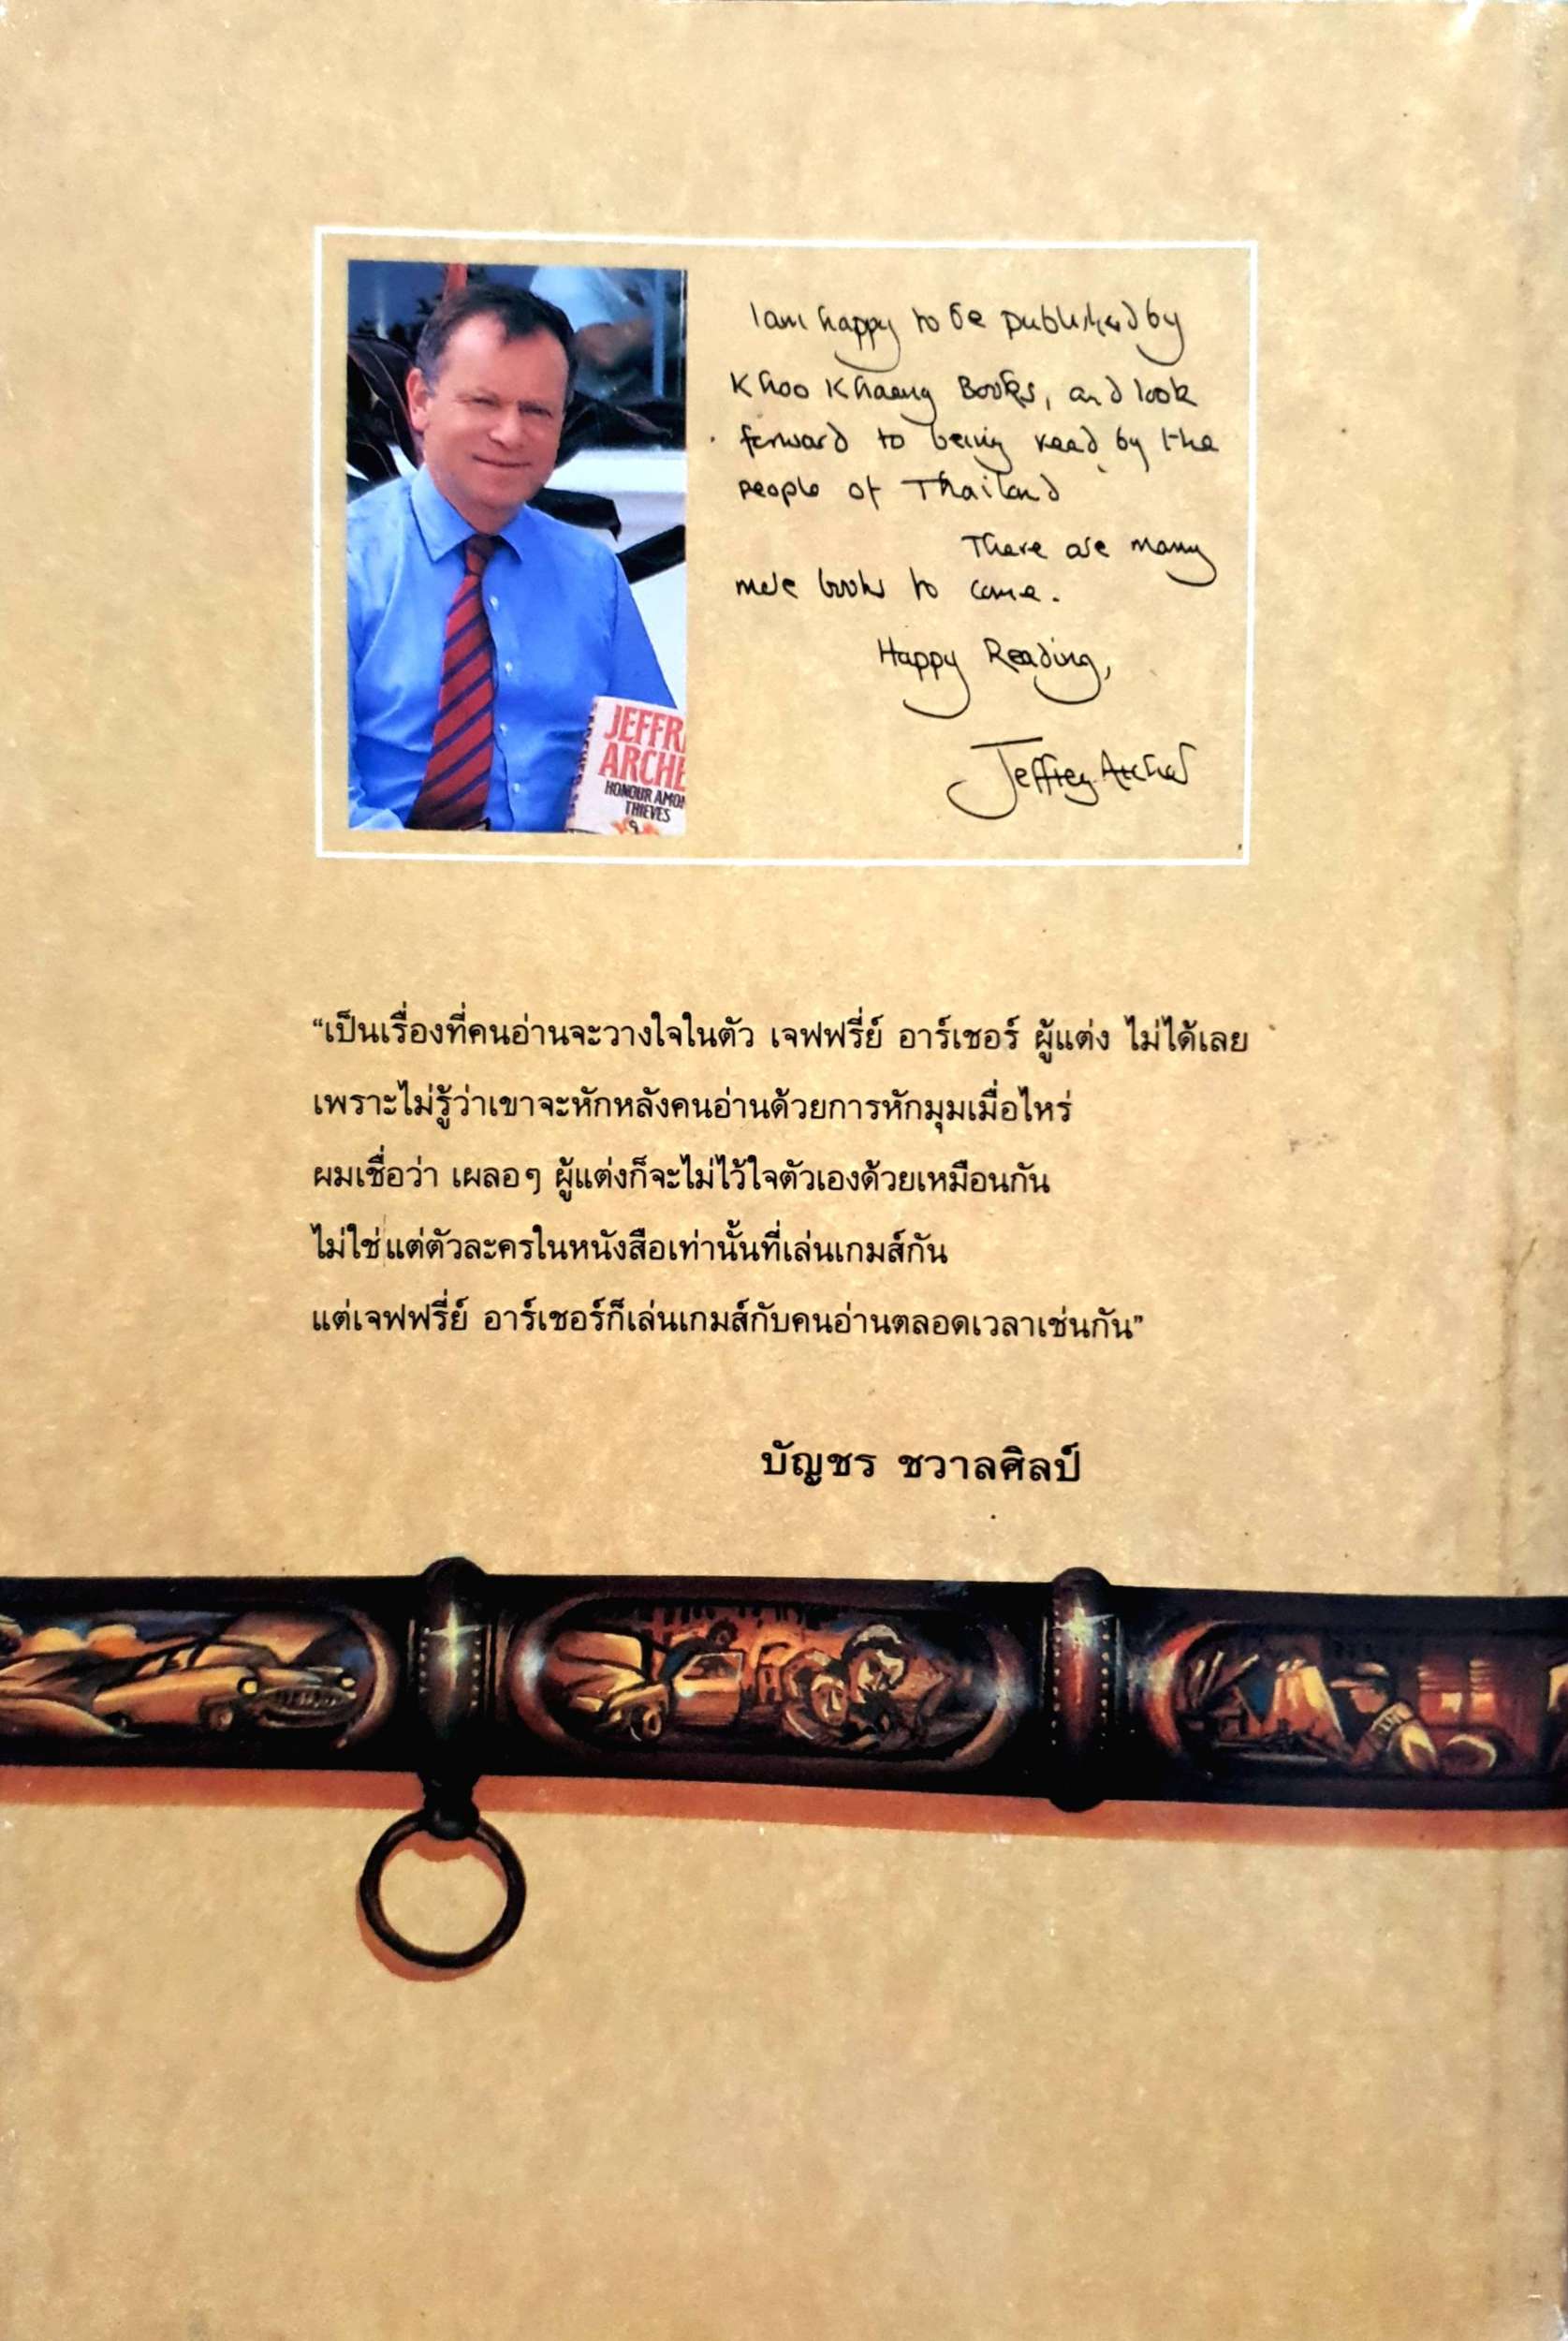 I am happy to be published by
Khoo Khaeng Books, and look
forward to being read by the
people of Thailand
There are many
more books to come.
Happy Reading,
Jeffrey Archer
JEFFR
ARCHE
HONOUR AMON
THIEVES
“เป็นเรื่องที่คนอ่านจะวางใจในตัว เจฟฟรี่ย์ อาร์เชอร์ ผู้แต่ง ไม่ได้เลย
เพราะไม่รู้ว่าเขาจะหักหลังคนอ่านด้วยการหักมุมเมื่อไหร่
ผมเชื่อว่า เผลอๆ ผู้แต่งก็จะไม่ไว้ใจตัวเองด้วยเหมือนกัน
ไม่ใช่แต่ตัวละครในหนังสือเท่านั้นที่เล่นเกมส์กัน
แต่เจฟฟรี่ย์ อาร์เชอร์ก็เล่นเกมส์กับคนอ่านตลอดเวลาเช่นกัน”
บัญชร ชวาลศิลป์